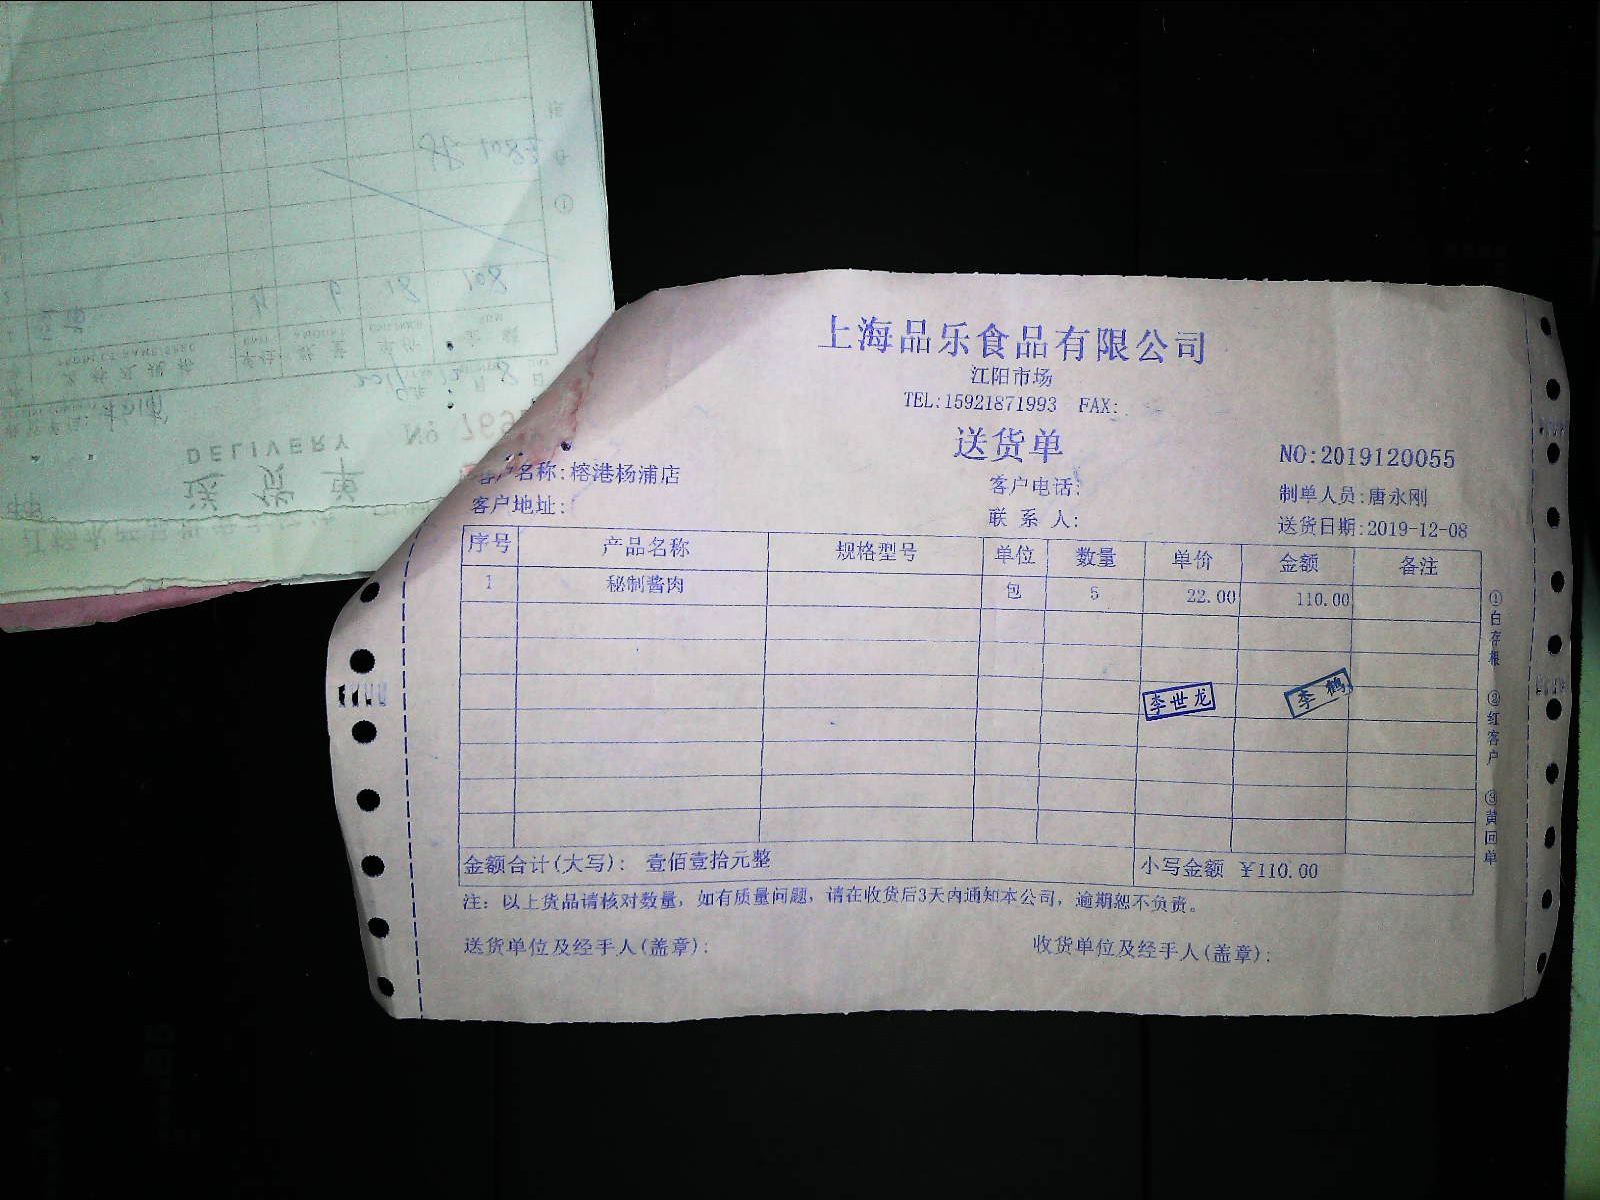 上海品乐食品有限公司
江阳市场
TEL:15921871993 FAX:
送货单
NO:2019120055
客户名称:榕港杨浦店
客户电话:
制单人员:唐永刚
客户地址:
联 系 人:
送货日期:2019-12-08
序号 产品名称 规格型号 单位 数量 单价 金额 备注
1 秘制酱肉 包 5 22.00 110.00
李世龙
李鹤
金额合计(大写): 壹佰壹拾元整 小写金额 ¥110.00
注: 以上货品请核对数量, 如有质量问题, 请在收货后3天内通知本公司, 逾期恕不负责。
送货单位及经手人(盖章): 收货单位及经手人(盖章):
①白存根 ②红客户 ③黄回单
送货单
DELIVERY